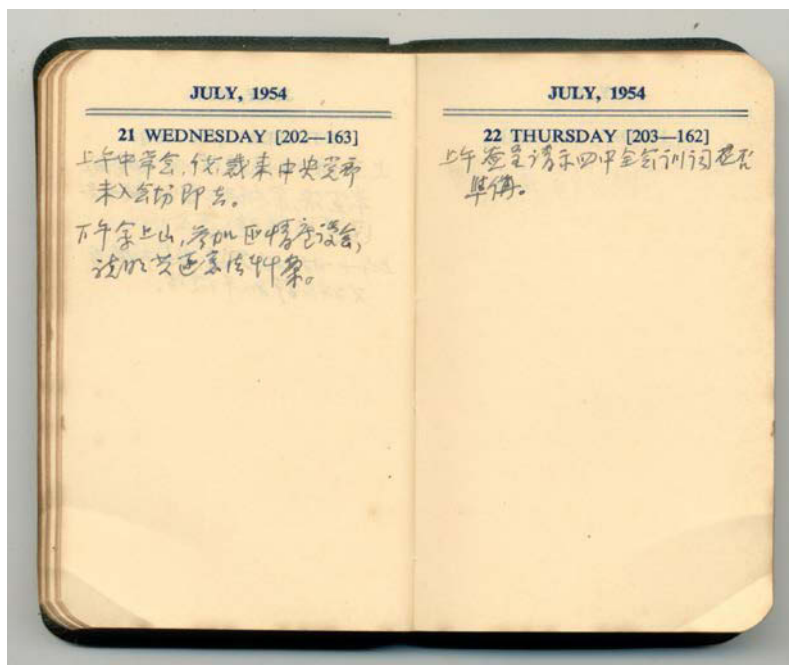 JULY, 1954
21 WEDNESDAY [202—163]
上午中常会，总裁来中央党部
未入会场即去。
下午余上山，参加匪情座谈会，
说明共匪宪法草案。
JULY, 1954
22 THURSDAY [203—162]
上午签呈请示四中全会训词是否
准备。